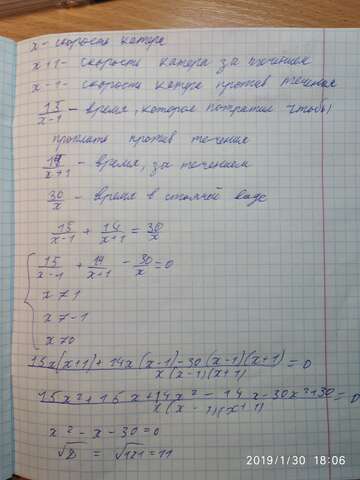 x - скорость катера
x+1 - скорость катера за течением
x-1 - скорость катера против течения
15/x-1 - время, которое потратил чтобы
проплать против течения
14/x+1 - время, за течением
30/x - время в стоячей воде
15/x-1 + 14/x+1 = 30/x
15/x-1 + 14/x+1 - 30/x = 0
x ≠ 1
x ≠ -1
x ≠ 0
15x(x+1) + 14x(x-1) - 30(x-1)(x+1) / x(x-1)(x+1) = 0
15x² + 15x + 14x² - 14x - 30x² + 30 / x(x-1)(x+1) = 0
x² - x - 30 = 0
√D = √121 = 11
2019/1/30 18:06